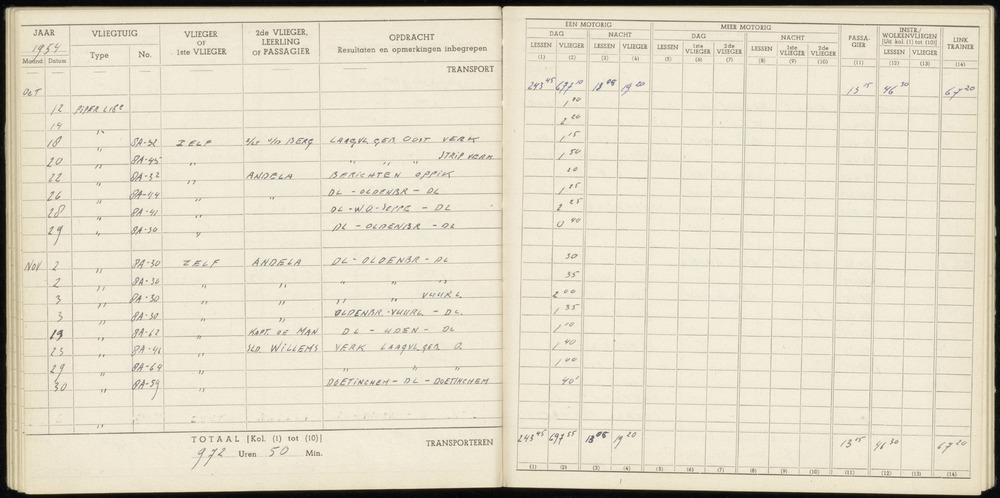 JAAR VLIEGTUIG VLIEGER OF 1ste VLIEGER 2de VLIEGER, LEERLING of PASSAGIER OPDRACHT Resultaten en opmerkingen inbegrepen
1954
Maand Datum Type No.
TRANSPORT
OCT
12 PIPER L18C
14 ,,
18 ,, 8A-52 ZELF BERG LAAGVL. GEB OOST VERK
20 ,, 8A-45 ,, ,, ,, ,, STRIP VERK
22 ,, 8A-32 ,, ANDELA BERICHTEN OPPIK
26 ,, 8A-44 ,, ,, DL - OLDENBR - DL
28 ,, 8A-41 ,, DL - W.D. - SEPPE - DL
29 ,, 8A-30 ,, DL - OLDENBR - DL
NOV 2 ,, 8A-30 ZELF ANDELA DL - OLDENBR - DL
2 ,, 8A-30 ,, ,, ,, ,,
3 ,, 8A-30 ,, ,, ,, ,, VUURL
3 ,, 8A-30 ,, ,, OLDENBR - VUURL - DL.
19 ,, 8A-62 ,, KAPT. DE MAN DL - UDEN - DL
23 ,, 8A-46 ,, SLD. WILLEMS VERK LAAGVL. GEB O.
29 ,, 8A-64 ,, ,, ,,
30 ,, 8A-59 ,, DOETINCHEM - DL - DOETINCHEM
,,
TOTAAL [Kol. (1) tot (10)] TRANSPORTEREN
972 Uren 50 Min.
EEN MOTORIG MEER MOTORIG PASSA-GIER INSTR./WOLKENVLIEGEN [Uit kol. (1) tot (10)] LINK TRAINER
DAG NACHT DAG NACHT
LESSEN VLIEGER LESSEN VLIEGER LESSEN 1ste VLIEGER 2de VLIEGER LESSEN 1ste VLIEGER 2de VLIEGER LESSEN VLIEGER
(1) (2) (3) (4) (5) (6) (7) (8) (9) (10) (11) (12) (13) (14)
243 45 697 10 18 05 19 20 13 15 46 30 67 20
1 00
2 20
1 15
1 50
20
1 25
2 25
0 40
30
35
2 00
1 35
1 10
1 40
1 00
40
243 45 697 55 18 05 19 20 13 15 46 30 67 20
(1) (2) (3) (4) (5) (6) (7) (8) (9) (10) (11) (12) (13) (14)